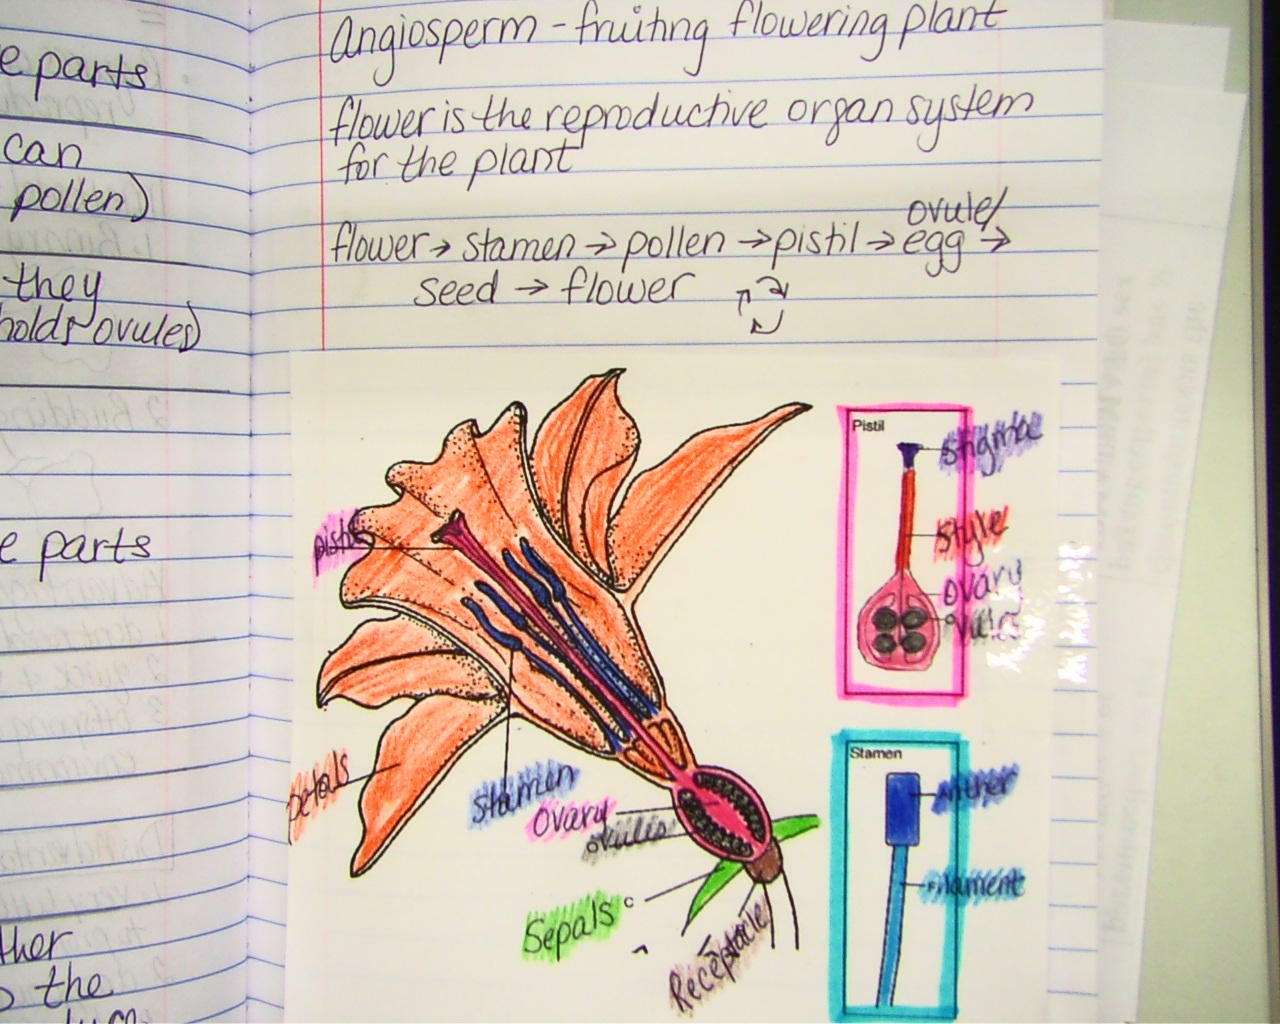 e parts
can
pollen)
they
holds ovules)
e parts
ther
the
Angiosperm - fruiting flowering plant
flower is the reproductive organ system
for the plant
flower → stamen → pollen → pistil → ovule/egg →
seed → flower
pistil
petals
stamen
ovary
ovules
Sepals
c
Receptacle
Pistil
stigma
style
ovary
ovules
Stamen
Anther
filament